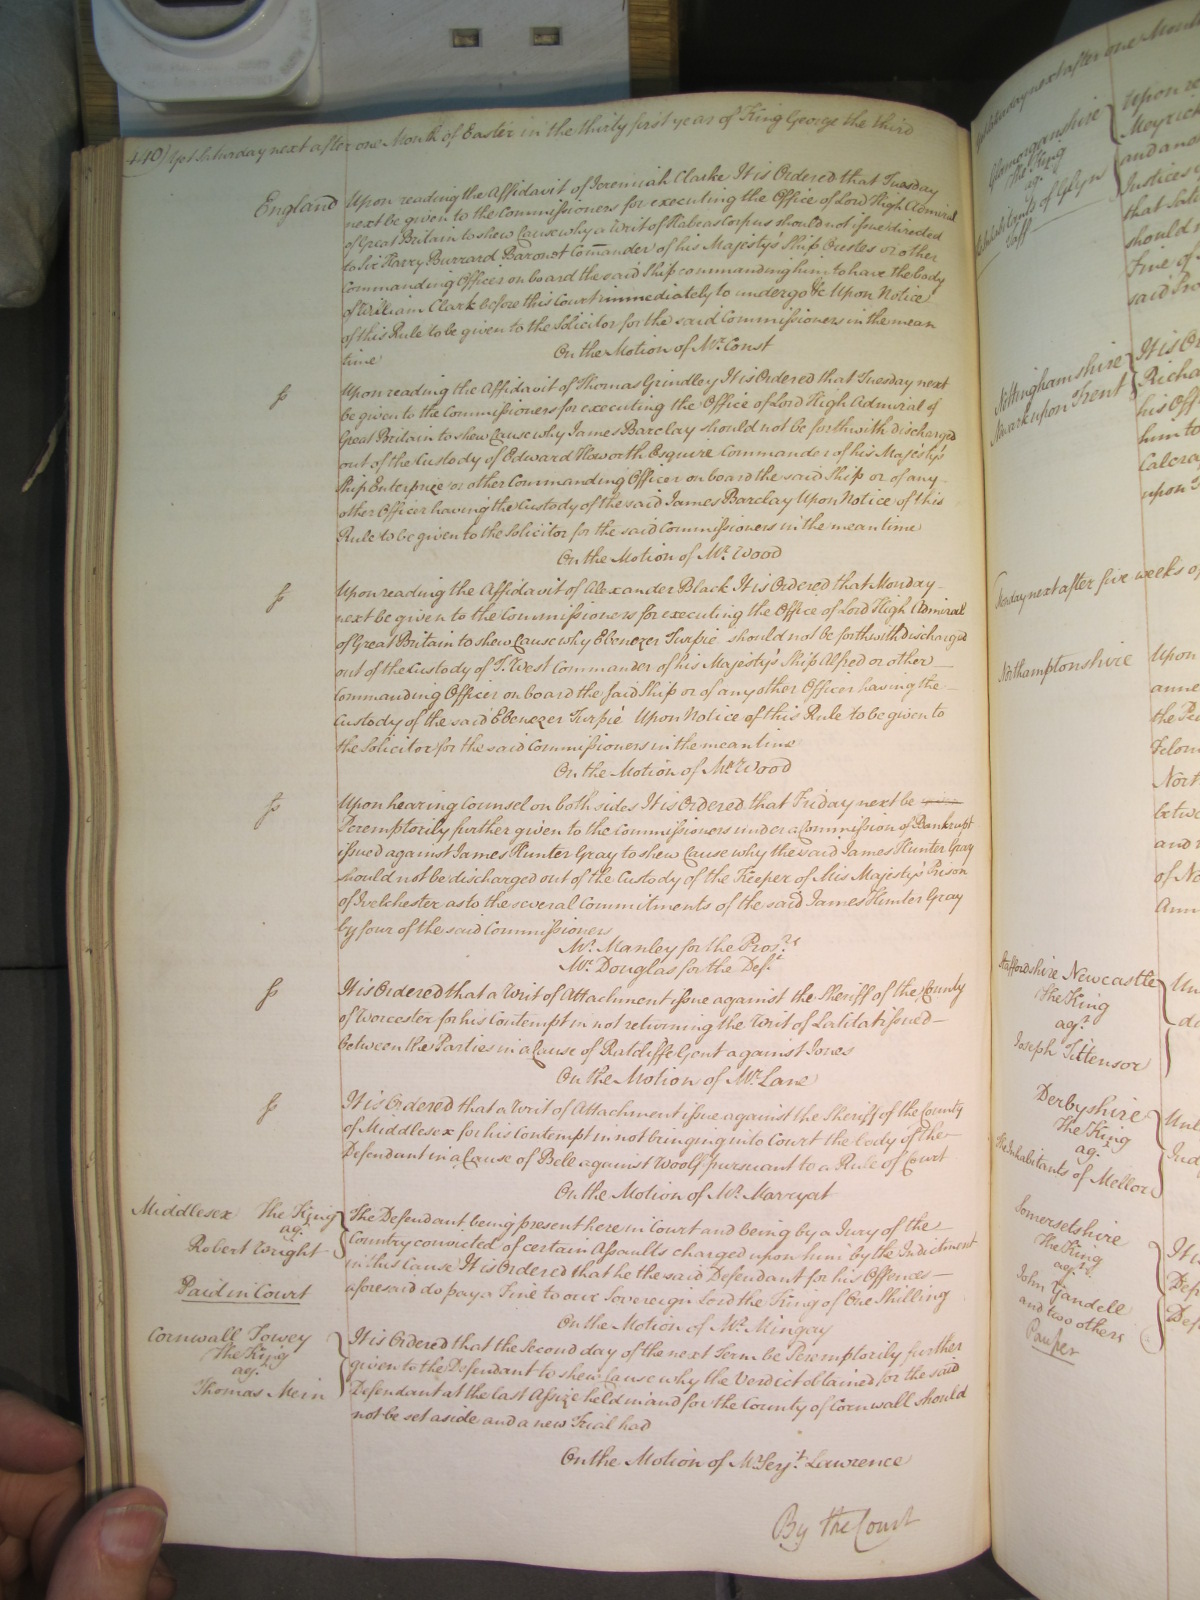 440) Yet Saturday next after one Month of Easter in the thirty first year of King George the third
England
Upon reading the Affidavit of Jeremiah Clarke It is Ordered that Tuesday
next be given to the Commissioners for executing the Office of Lord High Admiral
of Great Britain to shew Cause why a Writ of Habeas Corpus should not issue directed
to Sir Harry Burrard Baronet Comander of his Majesty's Ship Orestes or other
Commanding Officer on board the said Ship commanding him to have the body
of William Clark before this Court immediately to undergo &c Upon Notice
of this Rule to be given to the Solicitor for the said Commissioners in the mean
time
On the Motion of Mr. Const
ss
Upon reading the Affidavit of Thomas Grindley It is Ordered that Tuesday next
be given to the Commissioners for executing the Office of Lord High Admiral of
Great Britain to shew Cause why James Barclay should not be forthwith discharged
out of the Custody of Edward Haworth Esquire Commander of his Majesty's
Ship Enterprize or other Commanding Officer on board the said Ship or of any
other Officer having the Custody of the said James Barclay Upon Notice of this
Rule to be given to the Solicitor for the said Commissioners in the mean time
On the Motion of Mr. Wood
ss
Upon reading the Affidavit of Alexander Black It is Ordered that Monday
next be given to the Commissioners for executing the Office of Lord High Admiral
of Great Britain to shew Cause why Ebenezer Turpie should not be forthwith discharged
out of the Custody of T. West Commander of his Majesty's Ship Alfred or other
Commanding Officer on board the said Ship or of any other Officer having the
Custody of the said Ebenezer Turpie Upon Notice of this Rule to be given to
the Solicitor for the said Commissioners in the mean time
On the Motion of Mr. Wood
ss
Upon hearing Counsel on both sides It is Ordered that Friday next be
Peremptorily further given to the Commissioners under a Commission of Bankrupt
issued against James Hunter Gray to shew Cause why the said James Hunter Gray
should not be discharged out of the Custody of the Keeper of His Majesty's Prison
of Ivelchester as to the several Commitments of the said James Hunter Gray
by four of the said Commissioners
Mr. Manley for the Prosr.
Mr. Douglas for the Deft.
ss
It is Ordered that a Writ of Attachment issue against the Sheriff of the County
of Worcester for his Contempt in not returning the Writ of Latitat issued
between the Parties in a Cause of Ratcliffe Gent against Jones
On the Motion of Mr. Lane
ss
It is Ordered that a Writ of Attachment issue against the Sheriff of the County
of Middlesex for his Contempt in not bringing into Court the body of the
Defendant in a Cause of Bell against Woolf pursuant to a Rule of Court
On the Motion of Mr. Marryat
Middlesex The King
agt.
Robert Wright
Paid in Court
The Defendant being present here in Court and being by a Jury of the
Country convicted of certain Assaults charged upon him by the Indictment
in this Cause It is Ordered that he the said Defendant for his Offences
aforesaid do pay a Fine to our Sovereign Lord the King of One Shilling
On the Motion of Mr. Mingay
Cornwall Fowey
The King
agt.
Thomas Mein
It is Ordered that the Second day of the next Term be Peremptorily further
given to the Defendant to shew Cause why the Verdict obtained for the said
Defendant at the last Assize held in and for the County of Cornwall should
not be set aside and a new Trial had
On the Motion of Mr. Serjt. Lawrence
By the Court
Saturday next after one Month
Glamorganshire
The King
agt.
Inhabitants of Glyn
Taff
Upon re
Meyrick
and ano
Justices
that Satu
should n
Fine of
said Pro
Nottinghamshire
Newark upon Trent
It is Or
Richa
his Off
him to
Calcra
upon
Tuesday next after five weeks of
Northamptonshire
Upon
anne
the Pe
Felon
Nort
betwe
and
of No
Ann
Staffordshire Newcastle
The King
agt.
Joseph Tittensor
Un
Derbyshire
The King
agt.
The Inhabitants of Mellor
Unl
Jud
Somersetshire
The King
agt.
John Gandell
and two others
Pauper
It is
Def
Def